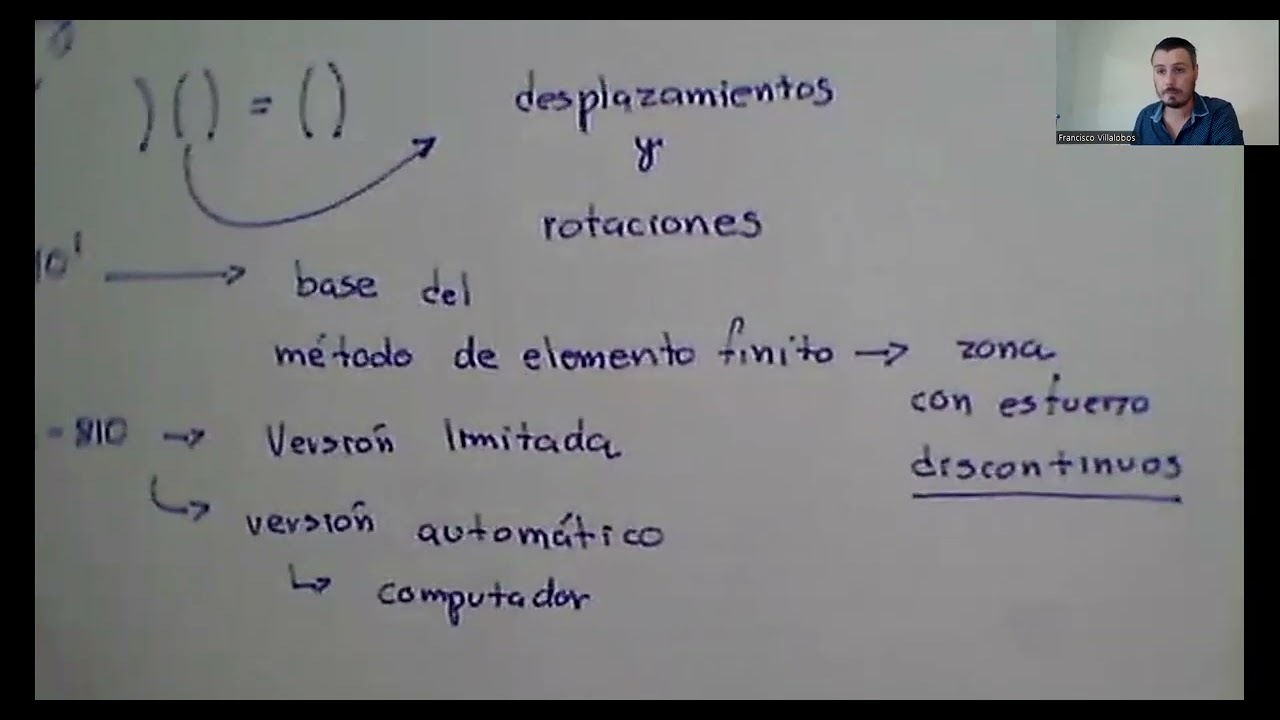 ) ( ) = ( )
desplazamientos
y
rotaciones
Francisco Villalobos
10¹ → base del
método de elemento finito → zona
con esfuerzo
discontinuos
= 810 → Versión limitada
↳ versión automático
↳ computador